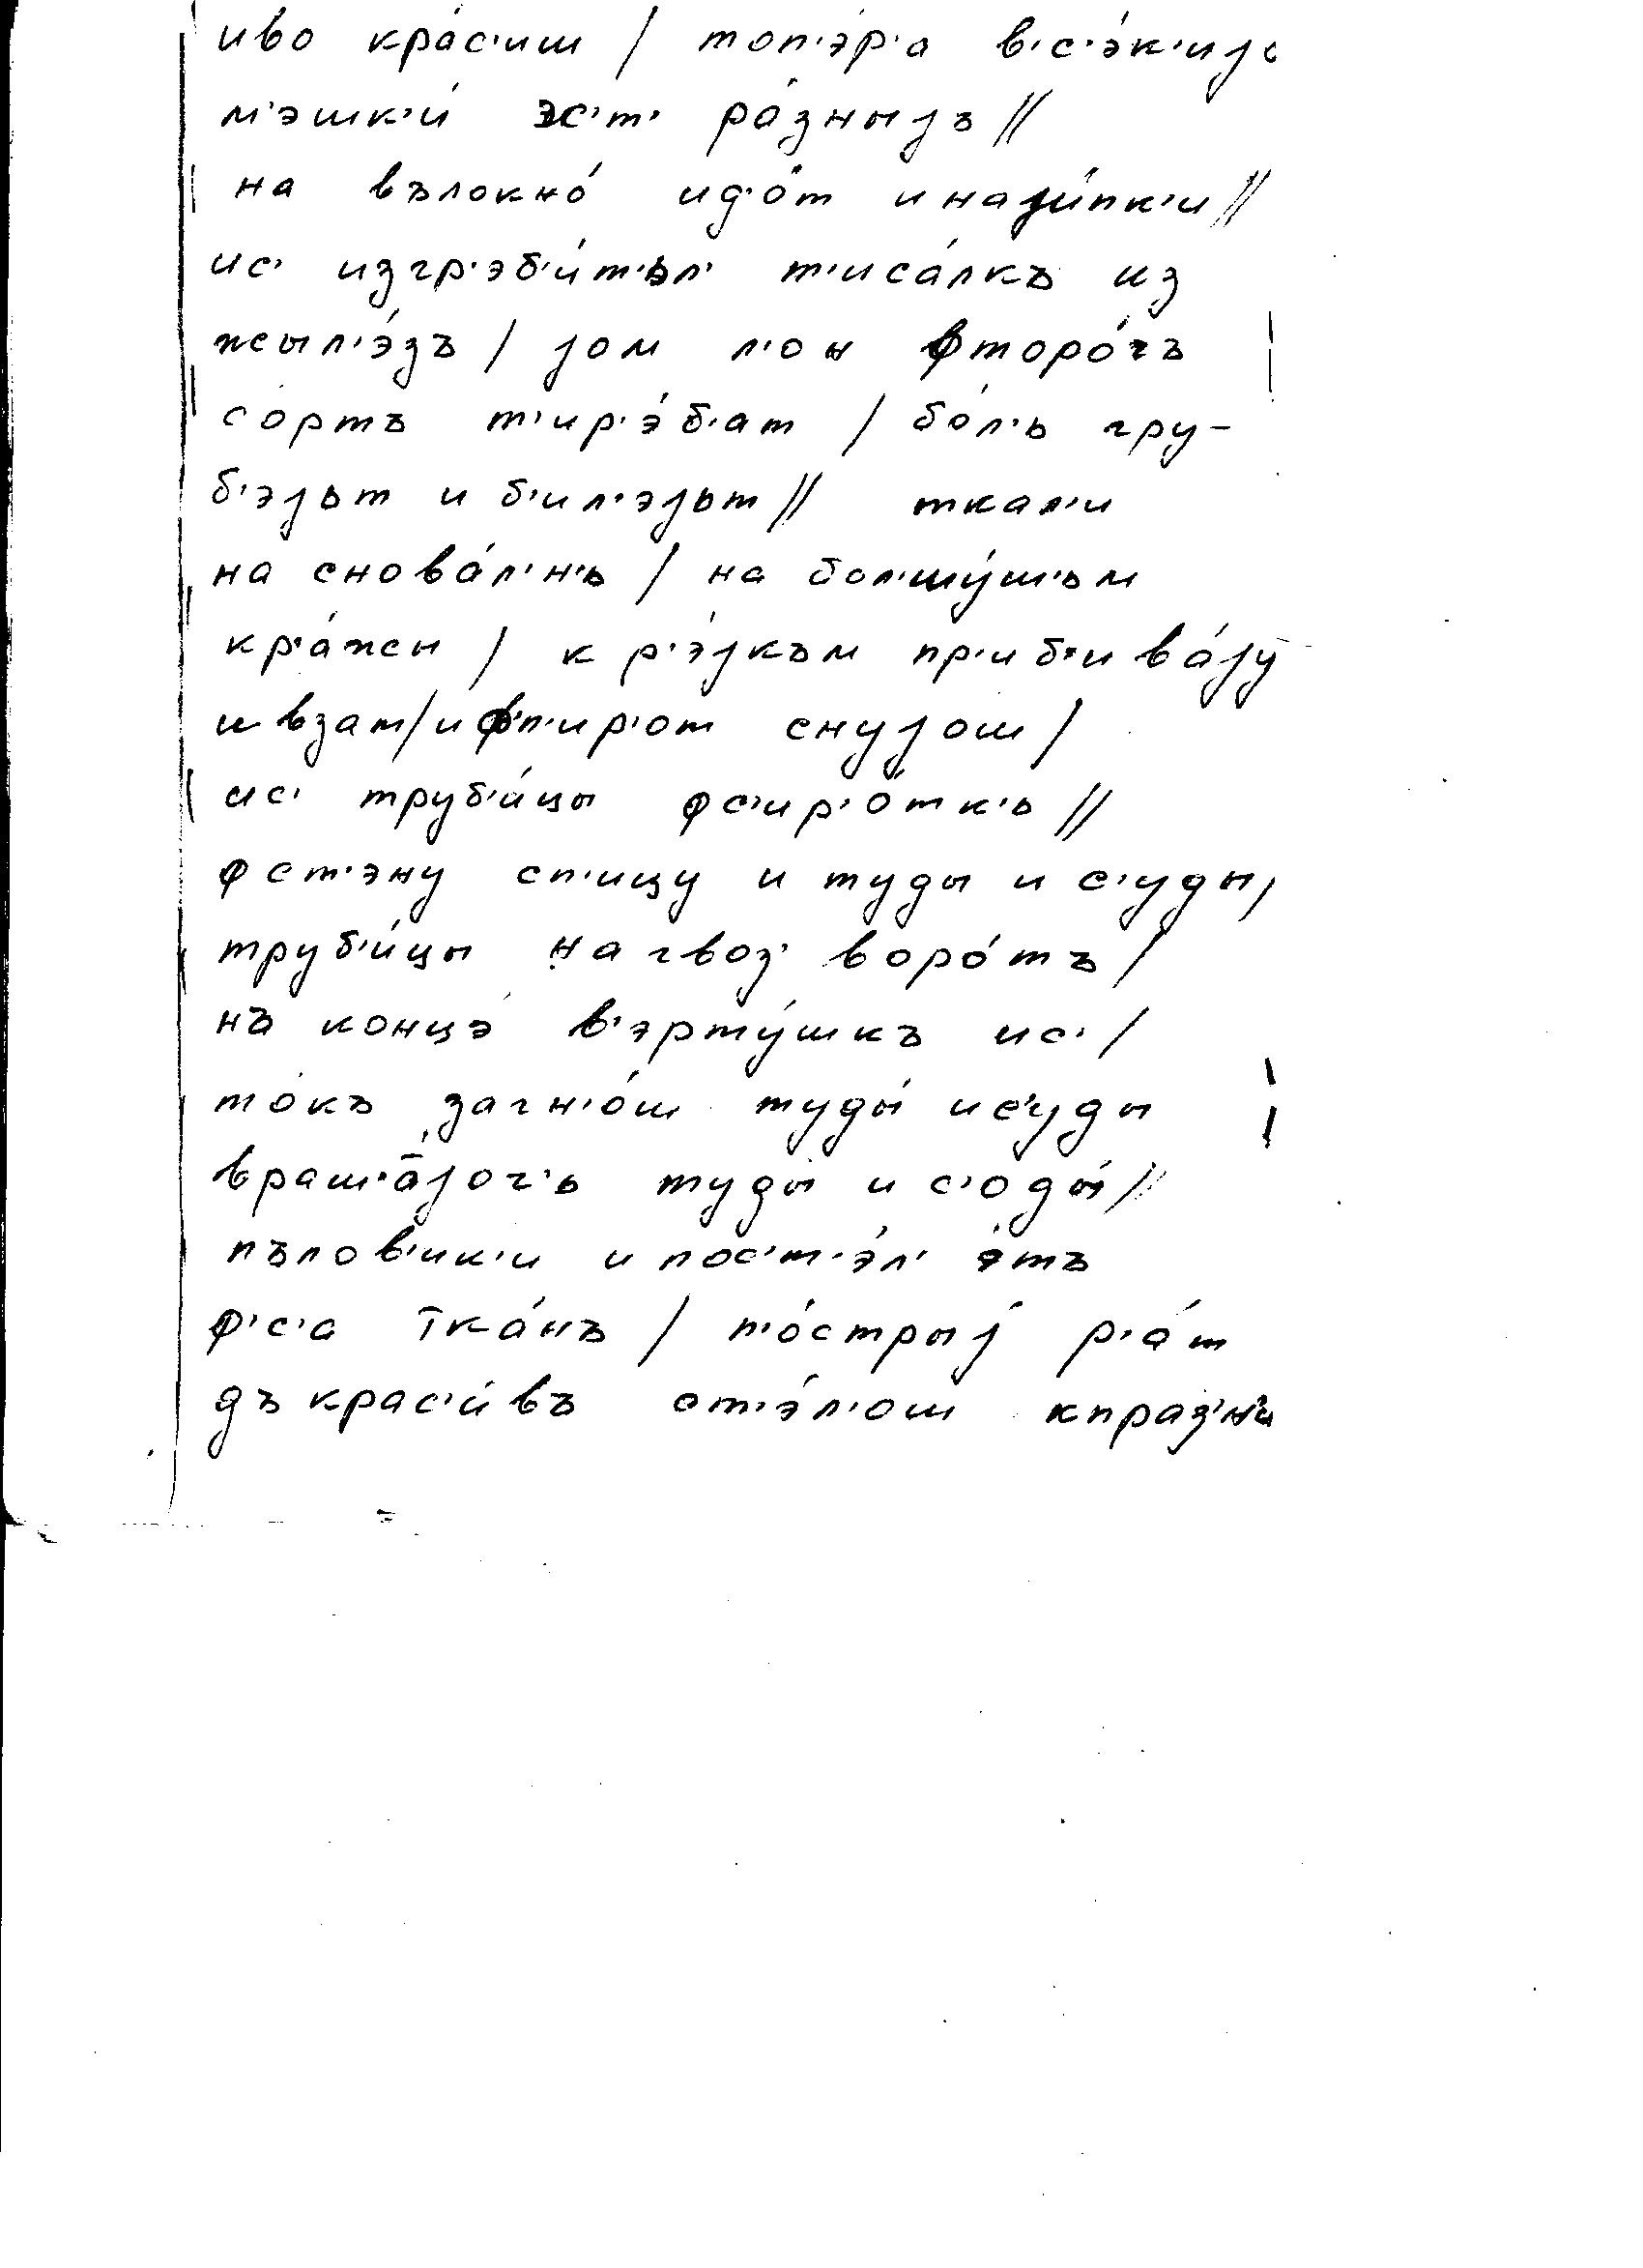 иво кра́с'иш / топ'э́р'а в'с'э́к'иjь
м'эшк'и́ эс'т' ра́зныjъ //
на вълокно́ ид'о́т и наз'и́пк'и //
ис' изгр'эб'и́т'ьл' т'иса́лкъ из
жыл'э́зъ / jом л'он фторо́гъ
со́ртъ т'ир'э́б'ат / бо́л'ь гру-
б'эjьт и б'ил'эjьт // ткал'и
на снова́л'н'ь / на бол'шу́ш'ьм
кр'а́жы / к р'э́jкъм пр'иб'ива́jу
и взат / и ф'п'ир'от снуjош /
ис' труб'и́цы фс'ир'о́тк'ь //
фст'эну сп'ицу и туды и с'уды /
труб'и́цы на гвоз' воро́тъ /
на концэ́ в'эрту́шкъ ис' /
то́къ загн'о́ш туды́ и с'уды
враш'а́jоч'ь туды́ и с'оды́ //
пълов'ик'и и пос'т'э́л' э́тъ
ф'с'а тка́нъ / п'о́стрыj р'а́т
дъ крас'и́въ ст'э́л'ош к праз'н'и